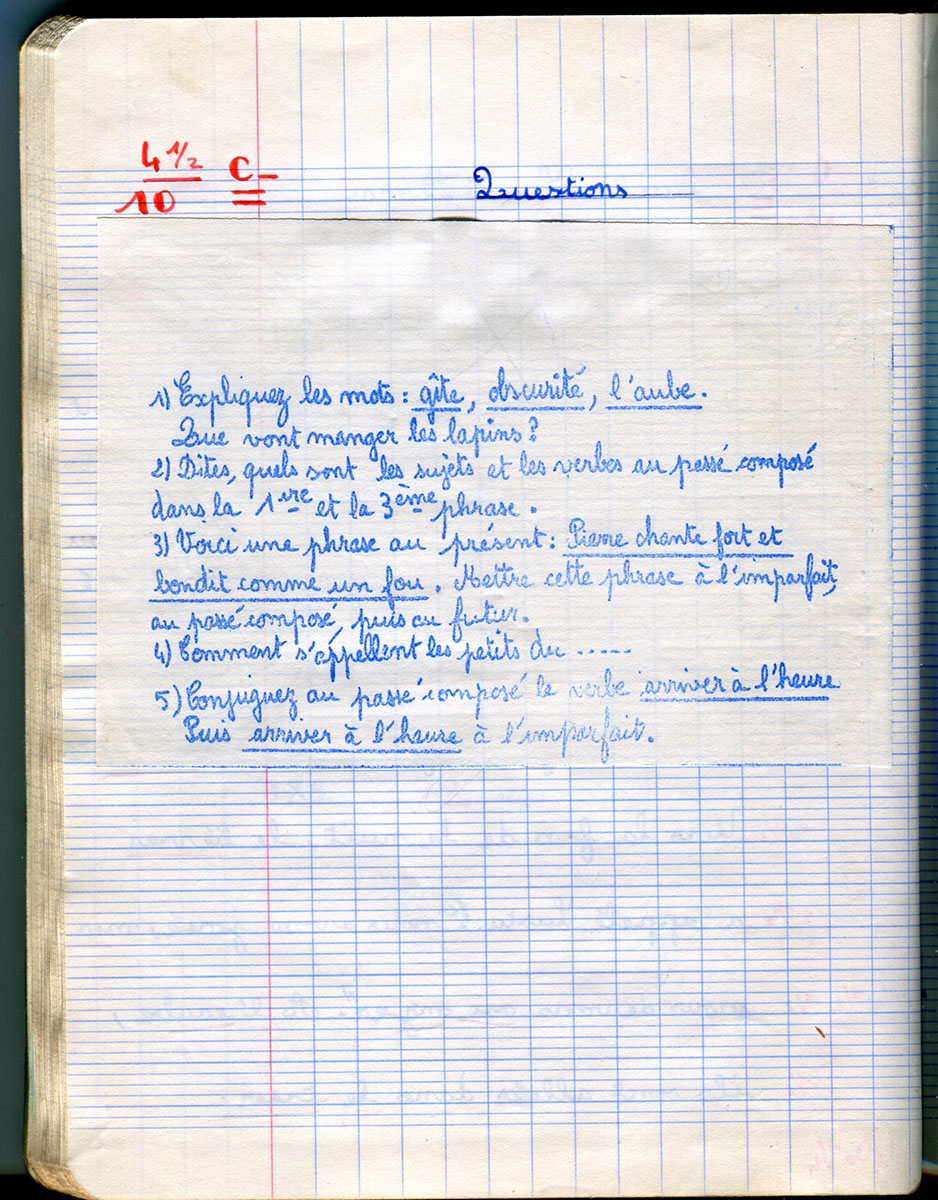 4 1/2
10
C-
Questions
1) Expliquez les mots : gîte, obscurité, l'aube.
Que vont manger les lapins ?
2) Dites, quels sont les sujets et les verbes au passé composé
dans la 1ire et la 3ème phrase.
3) Voici une phrase au présent : Pierre chante fort et
bondit comme un fou. Mettre cette phrase à l'imparfait,
au passé composé, puis au futur.
4) Comment s'appellent les petits du .....
5) Conjuguez au passé composé le verbe arriver à l'heure
Puis arriver à l'heure à l'imparfait.